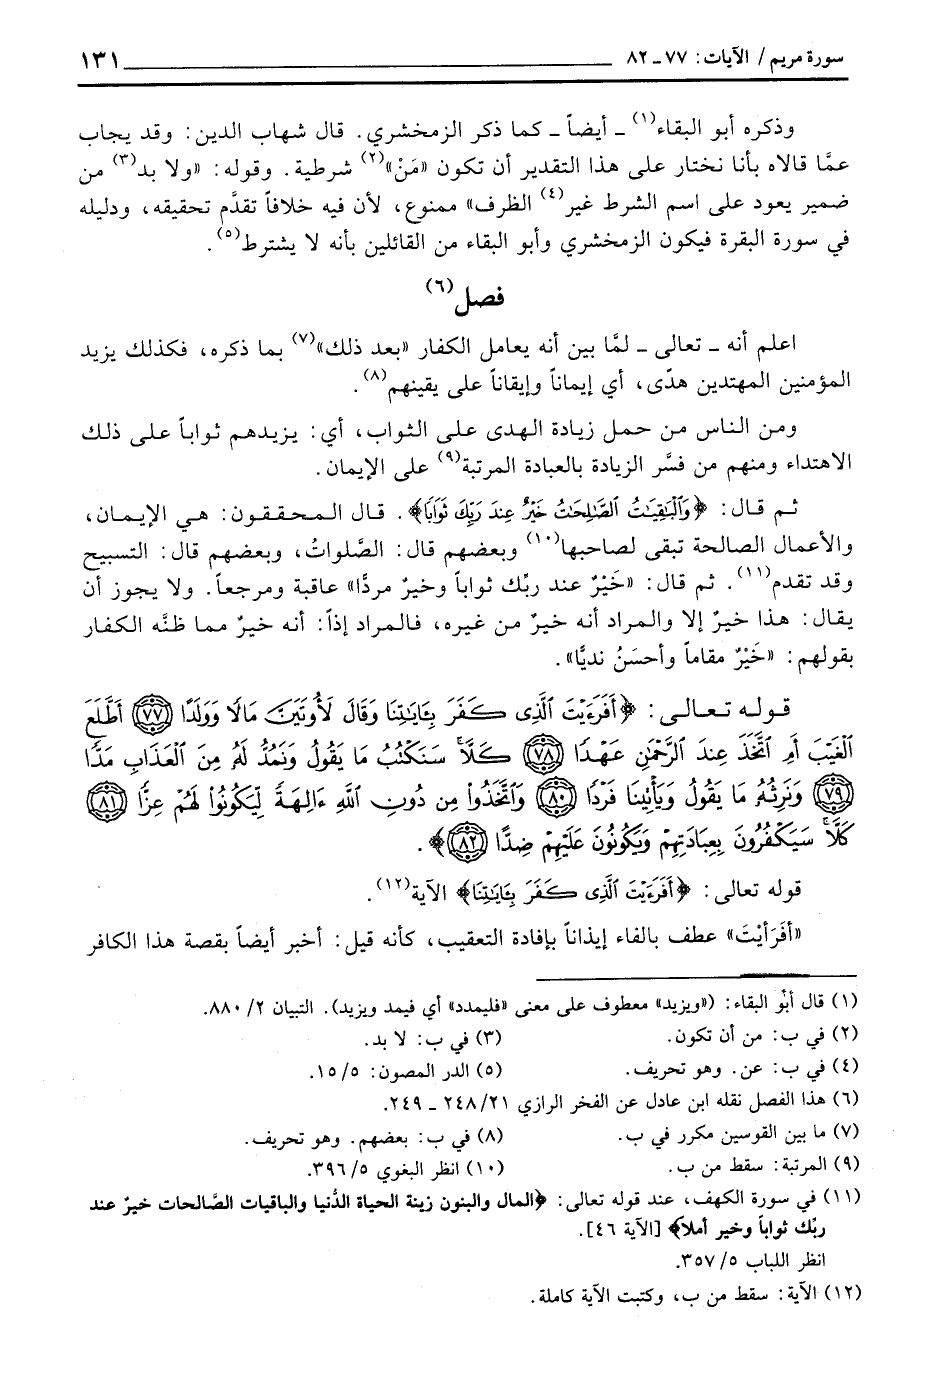 سورة مريم / الآيات: ٧٧ ـ ٨٢ ١٣١
وذكره أبو البقاء(١) ـ أيضاً ـ كما ذكر الزمخشري. قال شهاب الدين: وقد يجاب
عمَّا قالاه بأنا نختار على هذا التقدير أن تكون «مَنْ»(٢) شرطية. وقوله: «ولا بد(٣) من
ضمير يعود على اسم الشرط غير(٤) الظرف» ممنوع، لأن فيه خلافاً تقدَّم تحقيقه، ودليله
في سورة البقرة فيكون الزمخشري وأبو البقاء من القائلين بأنه لا يشترط(٥).
فصل(٦)
اعلم أنه ـ تعالى ـ لمَّا بين أنه يعامل الكفار «بعد ذلك»(٧) بما ذكره، فكذلك يزيد
المؤمنين المهتدين هدًى، أي إيماناً وإيقاناً على يقينهم(٨).
ومن الناس من حمل زيادة الهدى على الثواب، أي: يزيدهم ثواباً على ذلك
الاهتداء ومنهم من فسَّر الزيادة بالعبادة المرتبة(٩) على الإيمان.
ثم قال: ﴿وَٱلْبَٰقِيَٰتُ ٱلصَّٰلِحَٰتُ خَيْرٌ عِندَ رَبِّكَ ثَوَابًا﴾. قال المحققون: هي الإيمان،
والأعمال الصالحة تبقى لصاحبها(١٠) وبعضهم قال: الصَّلواتُ، وبعضهم قال: التسبيح
وقد تقدم(١١). ثم قال: «خَيْرٌ عند ربّك ثواباً وخيرٌ مردًّا» عاقبة ومرجعاً. ولا يجوز أن
يقال: هذا خيرٌ إلا والمراد أنه خيرٌ من غيره، فالمراد إذاً: أنه خيرٌ مما ظنَّه الكفار
بقولهم: «خَيْرٌ مقاماً وأحسَنُ نديًّا».
قوله تعالى: ﴿أَفَرَءَيْتَ ٱلَّذِى كَفَرَ بِـَٔايَٰتِنَا وَقَالَ لَأُوتَيَنَّ مَالًا وَوَلَدًا ﴿٧٧﴾ أَطَّلَعَ
ٱلْغَيْبَ أَمِ ٱتَّخَذَ عِندَ ٱلرَّحْمَٰنِ عَهْدًا ﴿٧٨﴾ كَلَّا سَنَكْتُبُ مَا يَقُولُ وَنَمُدُّ لَهُۥ مِنَ ٱلْعَذَابِ مَدًّا
﴿٧٩﴾ وَنَرِثُهُۥ مَا يَقُولُ وَيَأْتِينَا فَرْدًا ﴿٨٠﴾ وَٱتَّخَذُوا۟ مِن دُونِ ٱللَّهِ ءَالِهَةً لِّيَكُونُوا۟ لَهُمْ عِزًّا ﴿٨١﴾
كَلَّا سَيَكْفُرُونَ بِعِبَادَتِهِمْ وَيَكُونُونَ عَلَيْهِمْ ضِدًّا ﴿٨٢﴾﴾.
قوله تعالى: ﴿أَفَرَءَيْتَ ٱلَّذِى كَفَرَ بِـَٔايَٰتِنَا﴾ الآية(١٢).
«أفَرَأيْتَ» عطف بالفاء إيذاناً بإفادة التعقيب، كأنه قيل: أخبر أيضاً بقصة هذا الكافر
(١) قال أبو البقاء: («ويزيد» معطوف على معنى «فليمدد» أي فيمد ويزيد). التبيان ٢/ ٨٨٠.
(٢) في ب: من أن تكون. (٣) في ب: لا بد.
(٤) في ب: عن. وهو تحريف. (٥) الدر المصون: ٥/ ١٥.
(٦) هذا الفصل نقله ابن عادل عن الفخر الرازي ٢١/ ٢٤٨ ـ ٢٤٩.
(٧) ما بين القوسين مكرر في ب. (٨) في ب: بعضهم. وهو تحريف.
(٩) المرتبة: سقط من ب. (١٠) انظر البغوي ٥/ ٣٩٦.
(١١) في سورة الكهف، عند قوله تعالى: ﴿المال والبنون زينة الحياة الدُّنيا والباقيات الصَّالحات خيرٌ عند
ربّك ثواباً وخير أملاً﴾ [الآية ٤٦].
انظر اللباب ٥/ ٣٥٧.
(١٢) الآية: سقط من ب، وكتبت الآية كاملة.